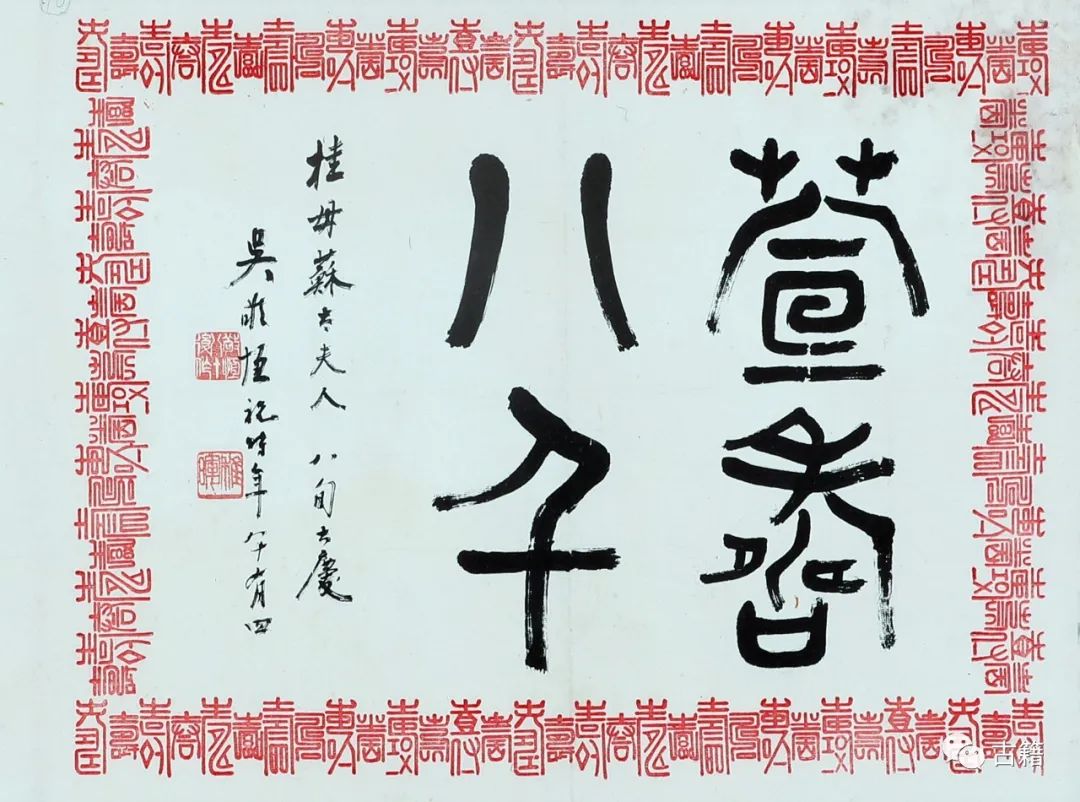 萱壽
八千
桂母蘇太夫人八旬大慶
吳敬恆祝時年八十有四
稚暉
古籍